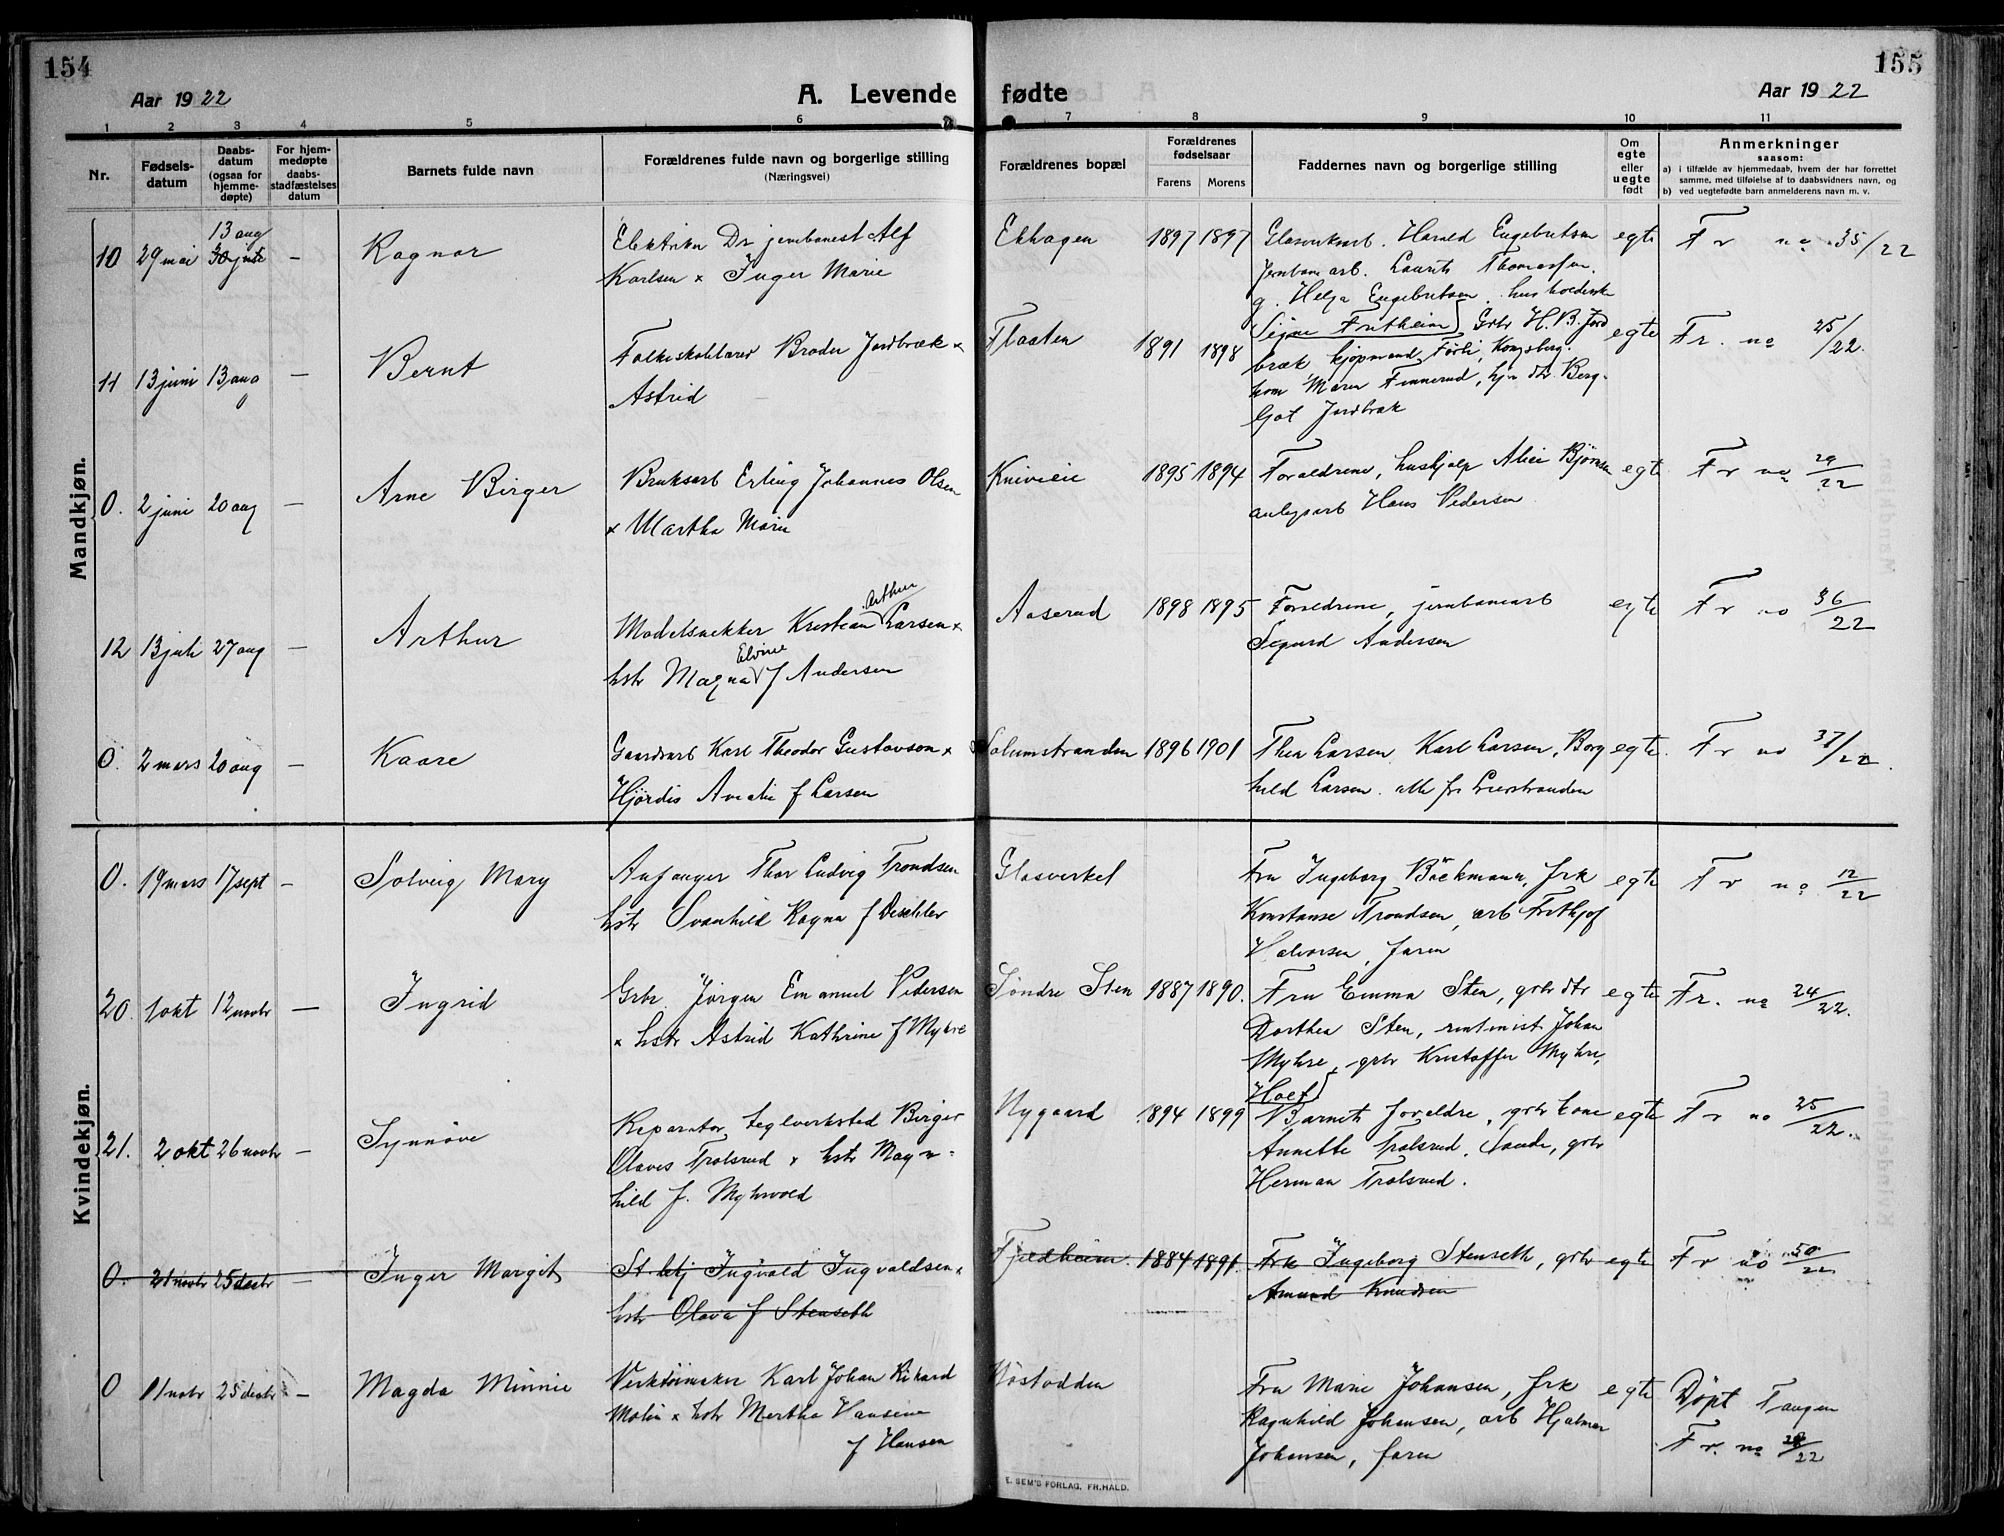 154
155
Aar 1922
A. Levende
fødte
Aar 1922
1 2 3 4 5 6 7 8 9 10 11
Nr.
Fødsels-
datum
Daabs-
datum
(ogsaa for
hjemme-
døpte)
For hjem-
medøpte
daabs-
stadfæstelses
datum
Barnets fulde navn
Forældrenes fulde navn og borgerlige stilling
(Næringsvei)
Forældrenes bopæl
Forældrenes
fødselsaar
Farens Morens
Faddernes navn og borgerlige stilling
Om
egte
eller
uegte
født
Anmerkninger
saasom:
a) i tilfælde av hjemmedaab, hvem der har forrettet
samme, med tilføielse af to daabsvidners navn, og
b) ved uegtefødte barn anmelderens navn m. v.
Mandkjøn.
10 29 mai 13 aug – Ragnar
Elektriker Dr jernbanest Alf
Karlsen × Inger Marie
Ekhagen 1897 1897
Glasverksarb. Harald Engebretsen
Jernban arb. Laurits Thomassen.
g. Helga Engebretsen. husholderske
Signe Frutheim
egte
Fr no 35/22
11 13 juni 13 aug – Bernt
Folkeskolelærer Broder Jordbræk ×
Astrid
Flaaten 1891 1898
Grbr H. B. Jord
bræk kjøpmand Kongsberg.
kone Maren Finnerud, Berg-
ljot Jordbræk
egte
Fr. no 25/22.
0. 2 juni 20 aug – Arne Birger
Bruksarb Erling Johannes Olsen
× Martha Marie
Kniveie 1895 1894
Forældrene, hushjælp Bjørnsen
anlegsarb Hans Pedersen
egte
Fr no 29/22
12 13 juli 27 aug – Arthur
Modelsnekker Kristian Arthur Larsen ×
hstr Magna Elvine f Andersen
Aaserud 1898 1895
Forældrene, jernbanearb
Sigurd Andersen
egte
Fr no 36/22
0. 2 mars 20 aug – Kaare
Gaardsarb Karl Theodor Gustavson ×
Hjørdis Amalie f Larsen
Solumstranden 1896 1901
Thea Larsen, Karl Larsen, Borg
hild Larsen. alle fr Lierstranden
egte.
Fr no 37/22.
Kvindekjøn.
0. 19 mars 17 sept – Solveig Mary
Anfanger Thor Ludvig Trondsen
hstr Svanhild Ragna f
Glasverket
Fru Ingeborg Bäckmann, frk
Konstanse Trondsen, arb Frithjof
Halvorsen, faren
egte
Fr no 12/22
20. 1 okt 12 novbr – Ingrid
Grbr Jørgen Emanuel Pedersen
× hstr Astrid Kathrine f Myhre
Søndre Sten 1887 1890.
Fru Emma Sten, grbr dtr
Dorthea Sten, rentenist Johan
Myhre, grbr Kristoffer Myhre,
Hoef
egte
Fr. no 24/22.
21. 2 okt 26 novbr – Synnøve
Reparatør teglverksted Birger
Olaves Trolsrud × hstr Magn-
hild f. Myhrvold
Nygaard 1894 1899
Barnets forældre, grbr kone
Annette Trolsrud, Sande, grbr
Herman Trolsrud.
egte
Fr no 25/22.
0. 21 novbr 25 decbr – Inger Margit
St. betj Ingvald Ingvaldsen ×
hstr Olava f Stenseth
Fjeldheim. 1884 1891.
Frk Ingeborg Stenseth, grbr
Amund Knudsen
egte
Fr no 50/22
0 11 novbr 25 decbr – Magda Minnie
Verktøimaker Karl Johan Rikard
Molin × hstr Mertha Hansine
f Hansen
Nøstodden
Fru Marie Johansen, frk
Ragnhild Johansen, arb Hjalmar
Johansen, faren
egte
Døpt Tangen
Fr. no
E. SEM'S FORLAG, FR.HALD.